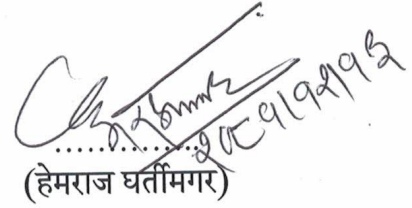 २०८१।१२।१३
...............
(हेमराज घर्तीमगर)